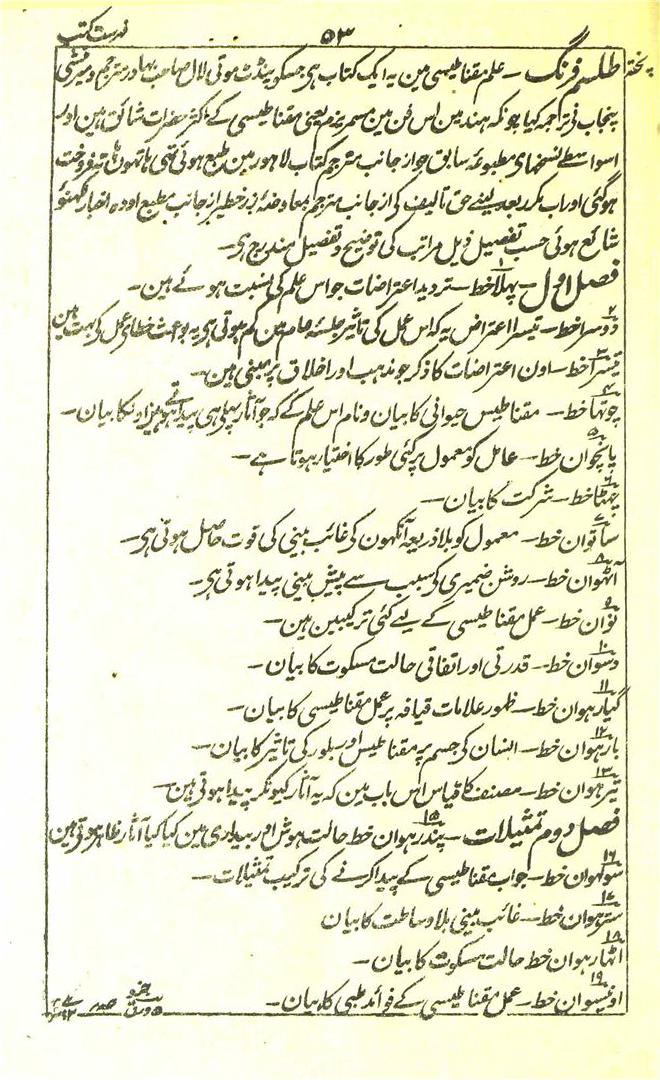 فہرست کتب
۵۳
طلسم فرنگ — علم مقناطیسی مین یہ ایک کتاب ہی جسکو پنڈت موتی لال صاحب بہادر مترجم و میر منشی
پنجاب نی ترجمہ کیا چونکہ ہند مین اس فن مین مسمریزم یعنی مقناطیسی کے اکثر حضرات شائق ہین اور
اسواسطے نسخہای مطبوعہ سابق جو از جانب مترجم کتاب لاہور مین طبع ہوئی تہی ہاتہون ہاتہ فروخت
ہوگئی اور اب مکرر بعد لینے حق تالیف کی از جانب مترجم بمعاوضۂ زر خطیر از جانب مطبع اودہ اخبار لکہنؤ
شائع ہوئی حسب تفصیل ذیل مراتب کی توضیح و تفصیل مندرج ہی —
فصل اول — ۱ پہلا خط — تردید اعتراضات جو اس علم کی نسبت ہوئے ہین —
۲ دوسرا خط — تیسرا اعتراض یہ کہ اس عمل کی تاثیر جلسۂ عام مین کم ہوتی ہی یہ بوجہ خطای عمل کی بہت ہین
۳ تیسرا خط — اون اعتراضات کا ذکر جو مذہب اور اخلاق پر مبنی ہین —
۴ چوتہا خط — مقناطیس حیوانی کا بیان و نام اس علم کے کہ جو آثار پہلی ہی پیدا ہوتے ہین اونکا بیان —
۵ پانچوان خط — عامل کو معمول پر کئی طور کا اختیار ہوتا ہے —
۶ چہٹا خط — شرکت کا بیان —
۷ ساتوان خط — معمول کو بلا ذریعہ آنکہون کی غائب بینی کی قوت حاصل ہوتی ہی —
۸ آٹہوان خط — روشن ضمیری کی سبب سے پیش بینی پیدا ہوتی ہی —
۹ نوان خط — عمل مقناطیسی کے لیے کئی ترکیبین ہین —
۱۰ دسوان خط — قدرتی اور اتفاقی حالت مسکوت کا بیان —
۱۱ گیارہوان خط — ظہور علامات قیافہ پر عمل مقناطیسی کا بیان —
۱۲ بارہوان خط — انسان کی جسم پر مقناطیس اور بلور کی تاثیر کا بیان —
۱۳ تیرہوان خط — مصنف کا قیاس اس باب مین کہ یہ آثار کیونکر پیدا ہوتی ہین —
فصل دوم تمثیلات — ۱۵ پندرہوان خط حالت ہوش اور بیداری مین کیا کیا آثار ظاہر ہوتی ہین
۱۶ سولہوان خط — خواب مقناطیسی کے پیدا کرنے کی ترکیب تمثیلات —
۱۷ سترہوان خط — غائب بینی بلا وساطت کا بیان
۱۸ اٹہارہوان خط حالت مسکوت کا بیان —
۱۹ اونیسوان خط — عمل مقناطیسی کے فوائد طبی کا بیان —